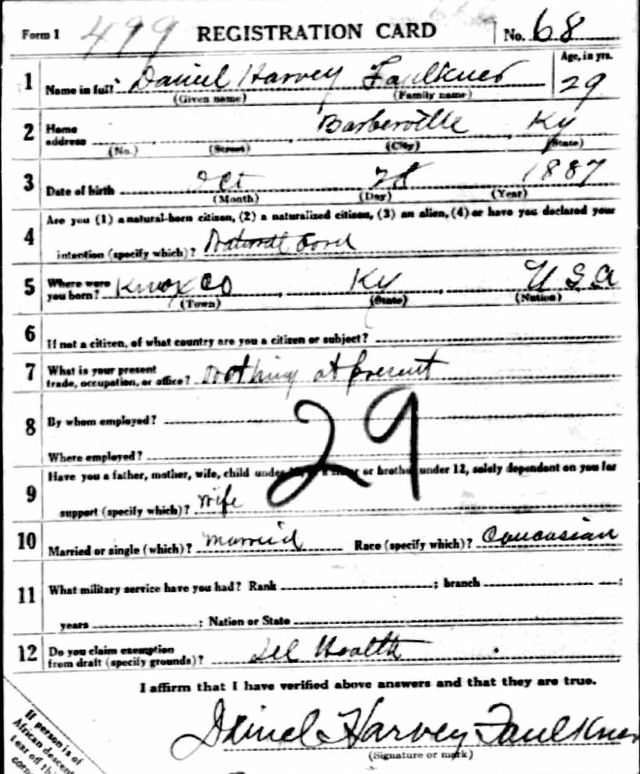 Form 1 499 REGISTRATION CARD No. 68
1 Name in full Daniel Harvey Faulkner Age, in yrs. 29
(Given name) (Family name)
2 Home address Barberville Ky
(No.) (Street) (City) (State)
3 Date of birth Oct 28 1887
(Month) (Day) (Year)
4 Are you (1) a natural-born citizen, (2) a naturalized citizen, (3) an alien, (4) or have you declared your
intention (specify which)? Natural born
5 Where were you born? Knox Co Ky U S A
(Town) (State) (Nation)
6 If not a citizen, of what country are you a citizen or subject?
7 What is your present trade, occupation, or office? Nothing at present
8 By whom employed?
Where employed?
29
9 Have you a father, mother, wife, child under or brother under 12, solely dependent on you for
support (specify which)? Wife
10 Married or single (which)? Married Race (specify which)? Caucasian
11 What military service have you had? Rank ; branch ;
years ; Nation or State
12 Do you claim exemption from draft (specify grounds)? Health
I affirm that I have verified above answers and that they are true.
Daniel Harvey Faulkner
(Signature or mark)
If person is of
African descent
tear off this
corner